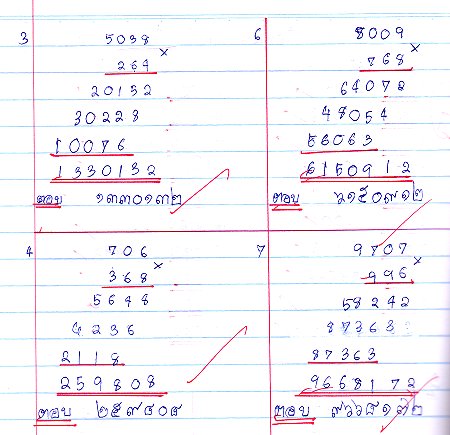 3
5038 ×
264
20152
30228
10076
1330132
ตอบ ๑๓๓๐๑๓๒
6
8009 ×
768
64072
48054
56063
6150912
ตอบ ๖๑๕๐๙๑๒
4
706 ×
368
5648
4236
2118
259808
ตอบ ๒๕๙๘๐๘
7
9707 ×
996
58242
87363
87363
9668172
ตอบ ๙๖๖๘๑๗๒